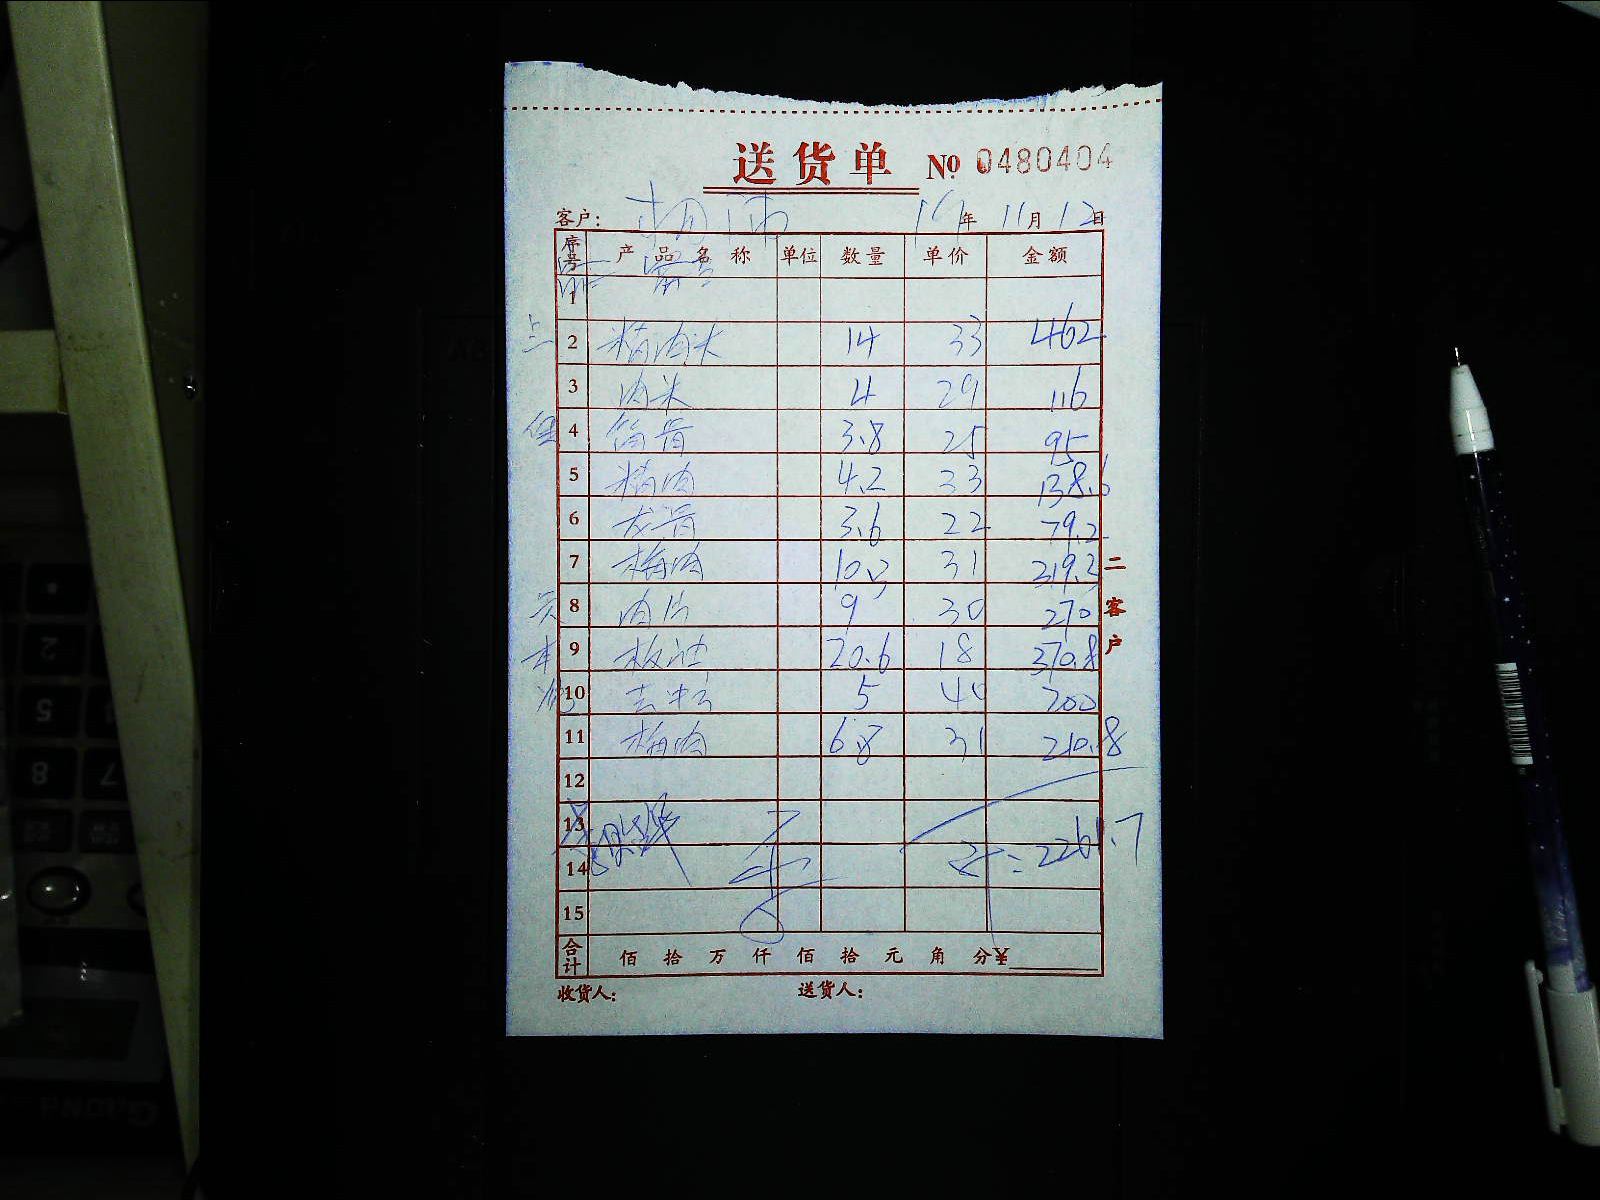 送货单 № 0480404
客户： 杨 年 11月12日
序号 产品名称 单位 数量 单价 金额
1
2 精肉米 14 33 462
3 肉米 4 29 116
4 筒骨 3.8 25 95
5 精肉 4.2 33 138.6
6 龙骨 3.6 22 79.2
7 梅肉 10.3 31 319.3
8 肉片 9 30 270
9 板油 20.6 18 370.8
10 5 40 200
11 梅肉 6.8 31 210.8
12
13
14 2261.7
15
合计 佰 拾 万 仟 佰 拾 元 角 分 ¥
收货人： 送货人：
二客户